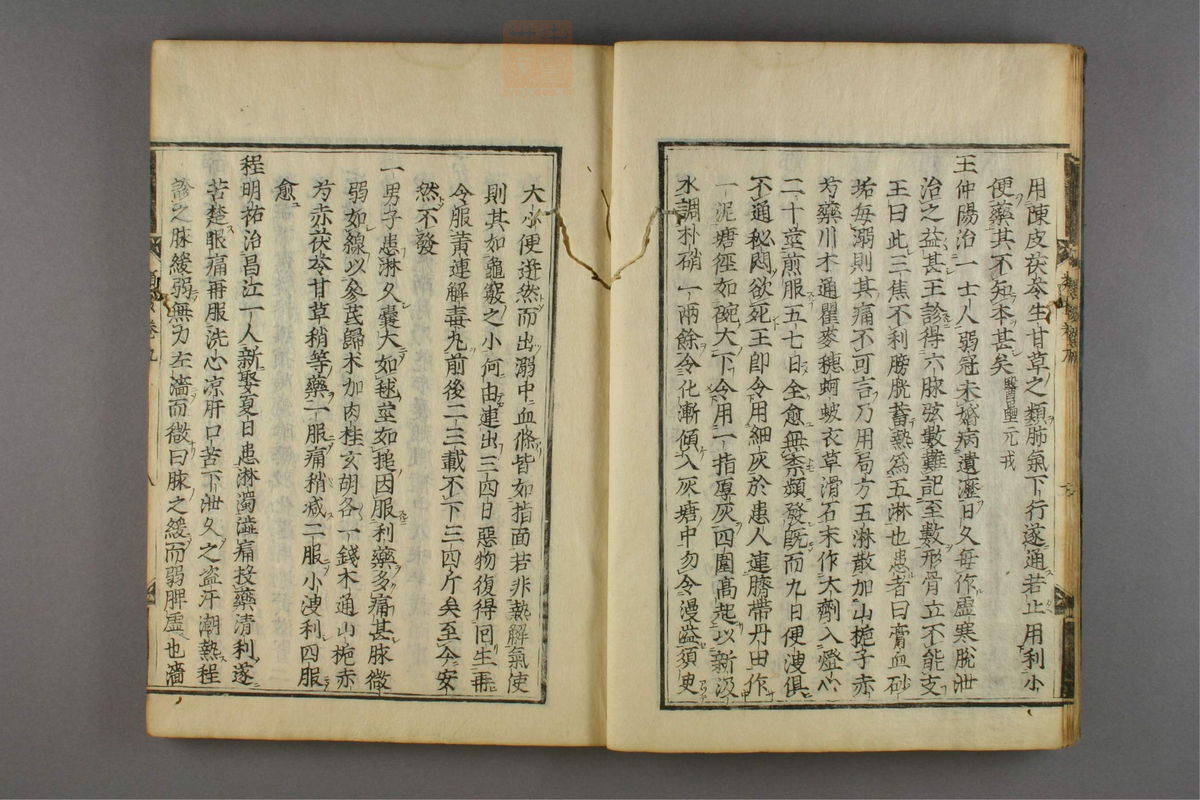 用陳皮茯苓生甘草之類肺氣下行遂通若止用利小
便藥其不知本甚矣 醫壘元戎
王仲陽治一士人弱冠未婚病遺瀝日久毎作虛寒脫泄
治之益甚王診得六脉弦數難記至數形骨立不能支
王曰此三焦不利膀胱蓄熱爲五淋也患者曰膏血砂
垢毎溺則其痛不可言乃用局方五淋散加山梔子赤
芍藥川木通瞿麥穗蚵蚾衣草滑石末作大劑入燈心
二十莖煎服五七日全愈無柰頻發既而九日便溲俱
不通秘悶欲死王卽令用細灰於患人連臍帶丹田作
一泥塘徑如碗大下令用一指厚灰四圍高起以新汲
水調朴硝一兩餘令化漸傾入灰塘中勿令漫溢須臾
大小便迸然而出溺中血條皆如指面若非熱解氣使
則其如龜竅之小何由連出三四日惡物復得回生再
令服黃連解毒丸前後二三載不下三四斤矣至今安
然不發
一男子患淋久囊大如毬莖如搥因服利藥多痛甚脉微
弱如線以參芪歸术加肉桂玄胡各一錢木通山梔赤
芍赤茯苓甘草稍等藥一服痛稍减二服小溲利四服
愈
程明祐治昌江一人新娶夏日患淋濁澁痛投藥清利遂
苦楚眼痛再服洗心凉肝口苦下泄久之盗汗潮熱程
診之脉緩弱無力左濇而微曰脉之緩而弱脾虛也濇